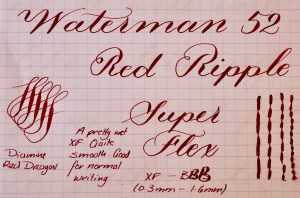 Waterman 52
Red Ripple
Super
Flex
A pretty wet
XF. Quite
smooth. Good
for normal
writing
Diamine
Red Dragon
XF - BBB
(0.3mm - 1.6mm)